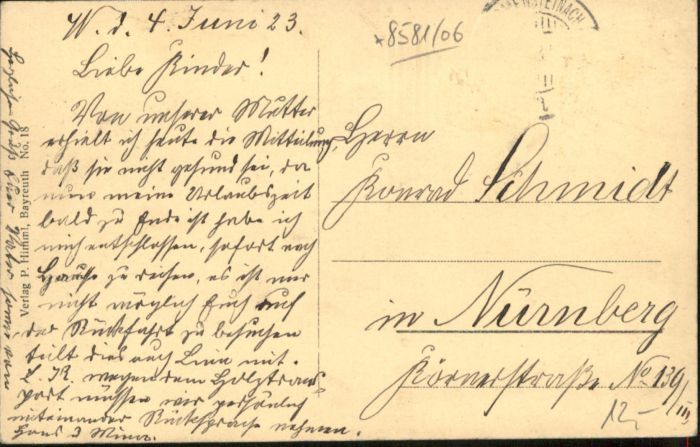 W. d. 4. Juni 23.
Liebe Kinder!
Von unserer Mutter
erhielt ich heute die Mitteilung,
daß sie nicht gesund sei, da
nun meine Urlaubszeit
bald zu Ende ist habe ich
mich entschlossen, sofort nach
Hause zu reisen, es ist mir
nicht möglich Euch auf
der Rückfahrt zu besuchen
teilt dies auch Lina mit.
wegen dem Holztrans-
port müssen wir persönlich
miteinander Rücksprache nehmen.
Gruß Euer Vater
Verlag P. Himml, Bayreuth No. 18
*8581/06
Herrn
Konrad Schmidt
in Nürnberg
Körnerstraße No 139/III
12,-